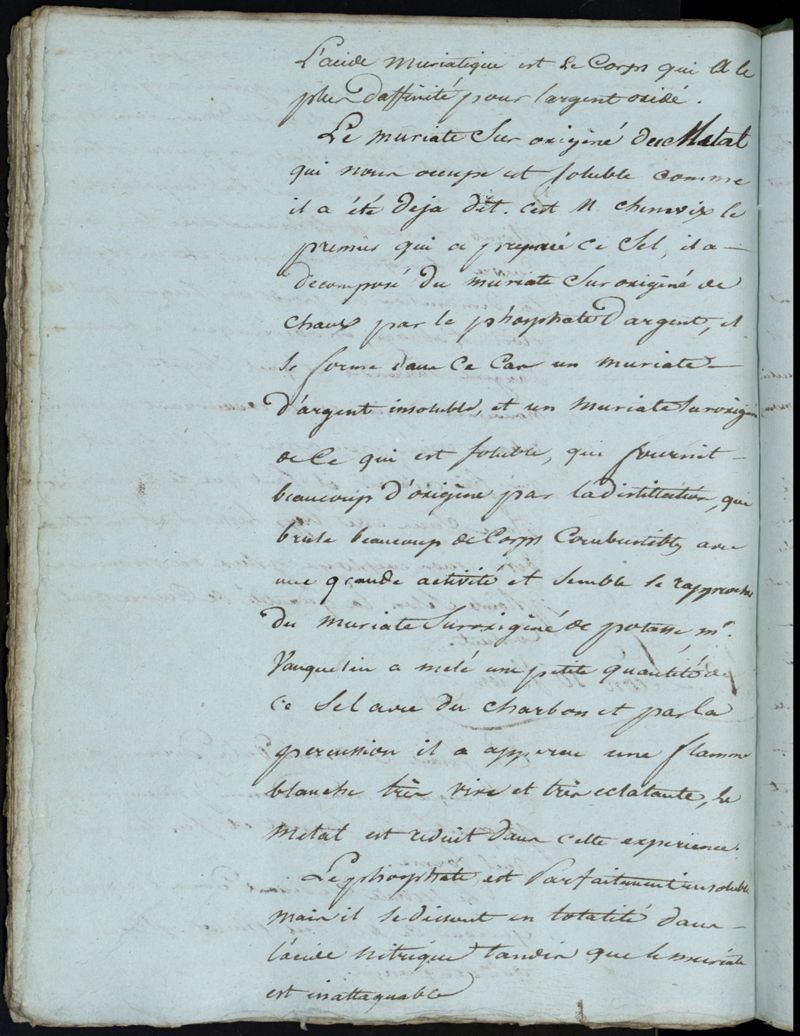 L'acide muriatique est le Corps qui a le
plus d'affinité pour l'argent oxidé.
Le muriate sur oxigéné du Metal
qui nous occupe est soluble comme
il a été deja dit. c'est M. chenevix le
premier qui a preparé ce Sel, il a
decomposé du muriate sur oxigéné de
chaux par le phosphate d'argent, il
se forme dans ce cas un muriate
d'argent insoluble, et un muriate suroxigé
de Ce qui est soluble, qui fournit
beaucoup d'oxigène par la distillation, que
brule beaucoup de Corps Combustibles avec
une grande activité et semble se rapprocher
du muriate suroxigéné de potasse, mr.
Vauquelin a melé une petite quantité de
ce Sel avec du charbon et par la
percussion il a apperçu une flamme
blanche très vive et très eclatante, le
metal est reduit dans cette experience.
Le phosphate est Parfaitement insoluble
mais il se dissout en totalité dans
l'acide nitrique tandis que le muriate
est inattaquable